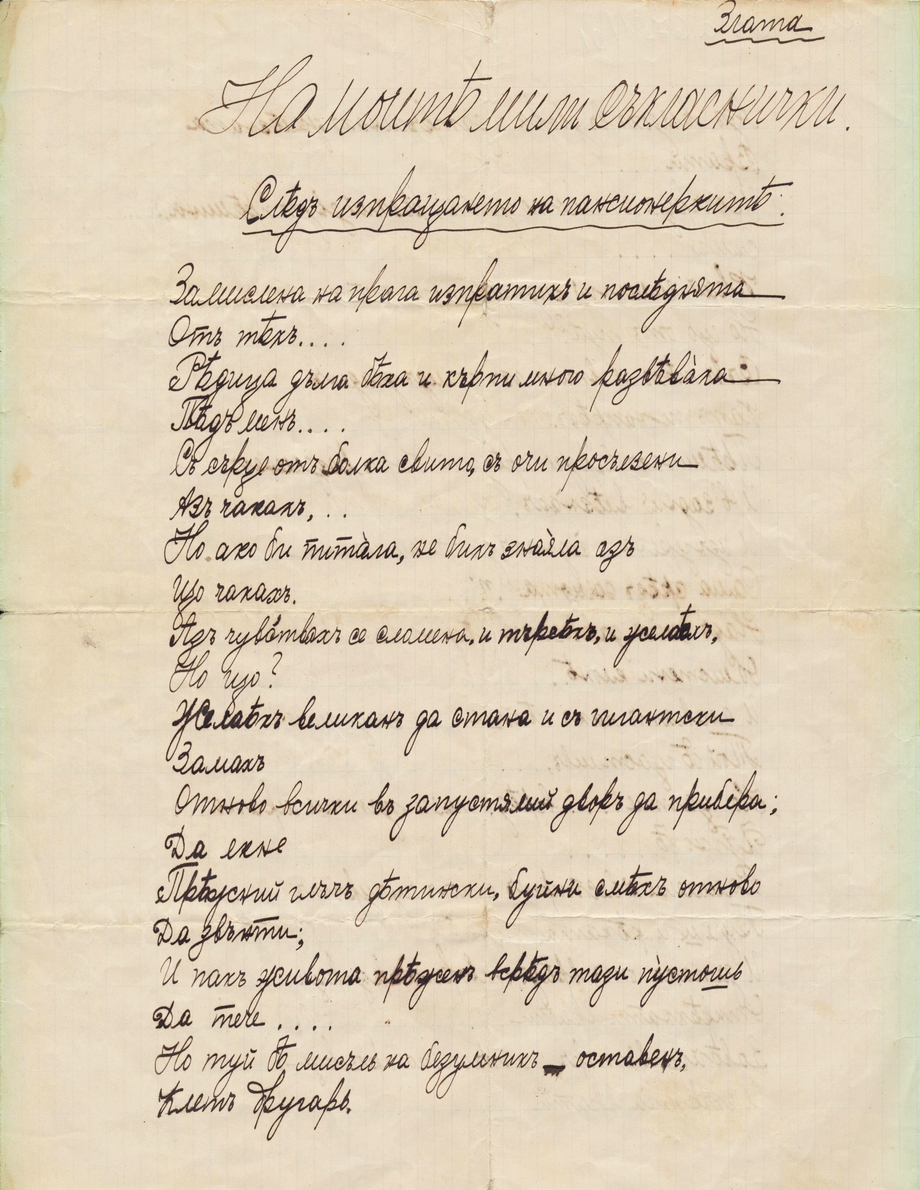 Злата
На моитѣ мили съкласнички.
Слѣдъ изпращането на пансионеркитѣ.
Замислена на прага изпратихъ и послѣднята
Отъ тѣхъ....
Рѣдица дълга бѣха и кърпи много развѣваха
Прѣдъ менъ....
Съ сърце отъ болка свито, съ очи просълзени
Азъ чакахъ, ..
Но ако би питала, не бихъ знаяла азъ
Що чакахъ.
Азъ чувствахъ се сломена, и търпѣхъ, и желаѣхъ,
Но що?
Желаѣхъ великанъ да стана и съ гигантски
Замахъ
Отново всички въ запустялий дворъ да прибера;
Да екне
Прѣжний глъчъ дѣтински, буйни смѣхъ отново
Да звънти;
И пакъ живота прѣженъ врѣдъ тази пустошь
Да тече ....
Но туй бѣ мисъль на безумникъ – оставенъ,
Клетъ другарь.